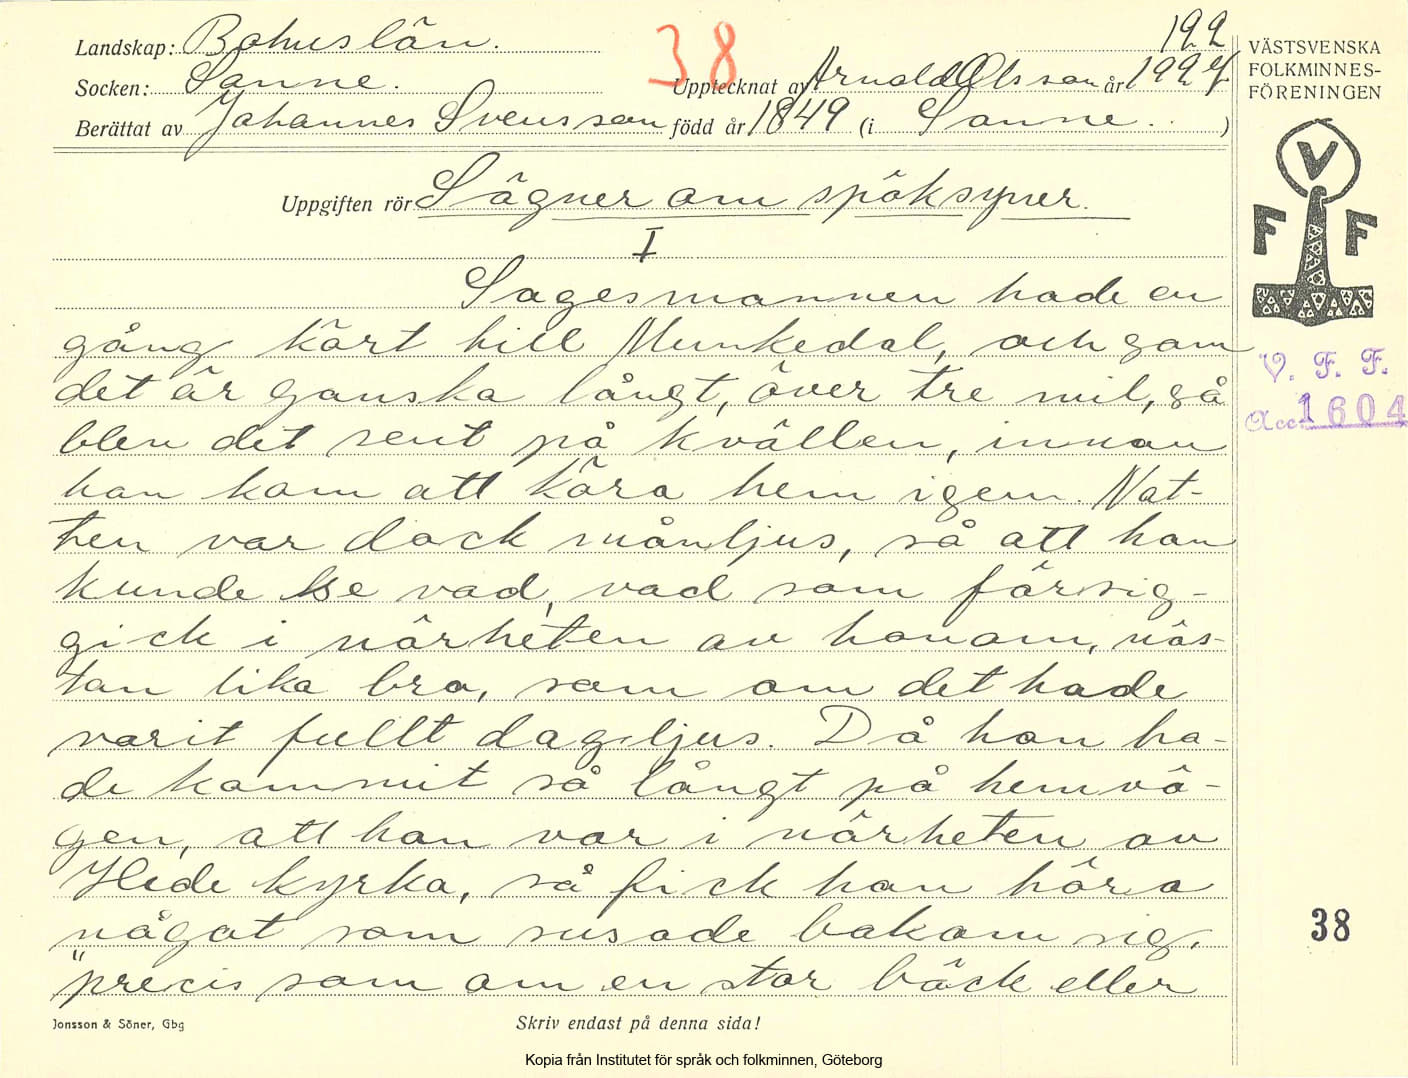 Landskap: Bohuslän. 192
Socken: Sanne. 38 Upptecknat av Arnold Olsson år 1927
Berättat av Johannes Svensson född år 1849 (i Sanne. )
VÄSTSVENSKA
FOLKMINNES-
FÖRENINGEN
Uppgiften rör Sägner om spöksyner.
I
V
F F
Sagesmannen hade en
gång kört till Munkedal, och som
det är ganska långt, över tre mil, så
blev det sent på kvällen, innan
han kom att köra hem igen. Nat-
ten var dock månljus, så att han
kunde se vad, vad som försig-
gick i närheten av honom, näs-
tan lika bra, som om det hade
varit fullt dagsljus. Då han ha-
de kommit så långt på hemvä-
gen, att han var i närheten av
Hede kyrka, så fick han höra
något som susade bakom sig,
"precis som om en stor bäck eller
V. F. F.
Acc. 1604
38
Jonsson & Söner, Gbg
Skriv endast på denna sida!
Kopia från Institutet för språk och folkminnen, Göteborg